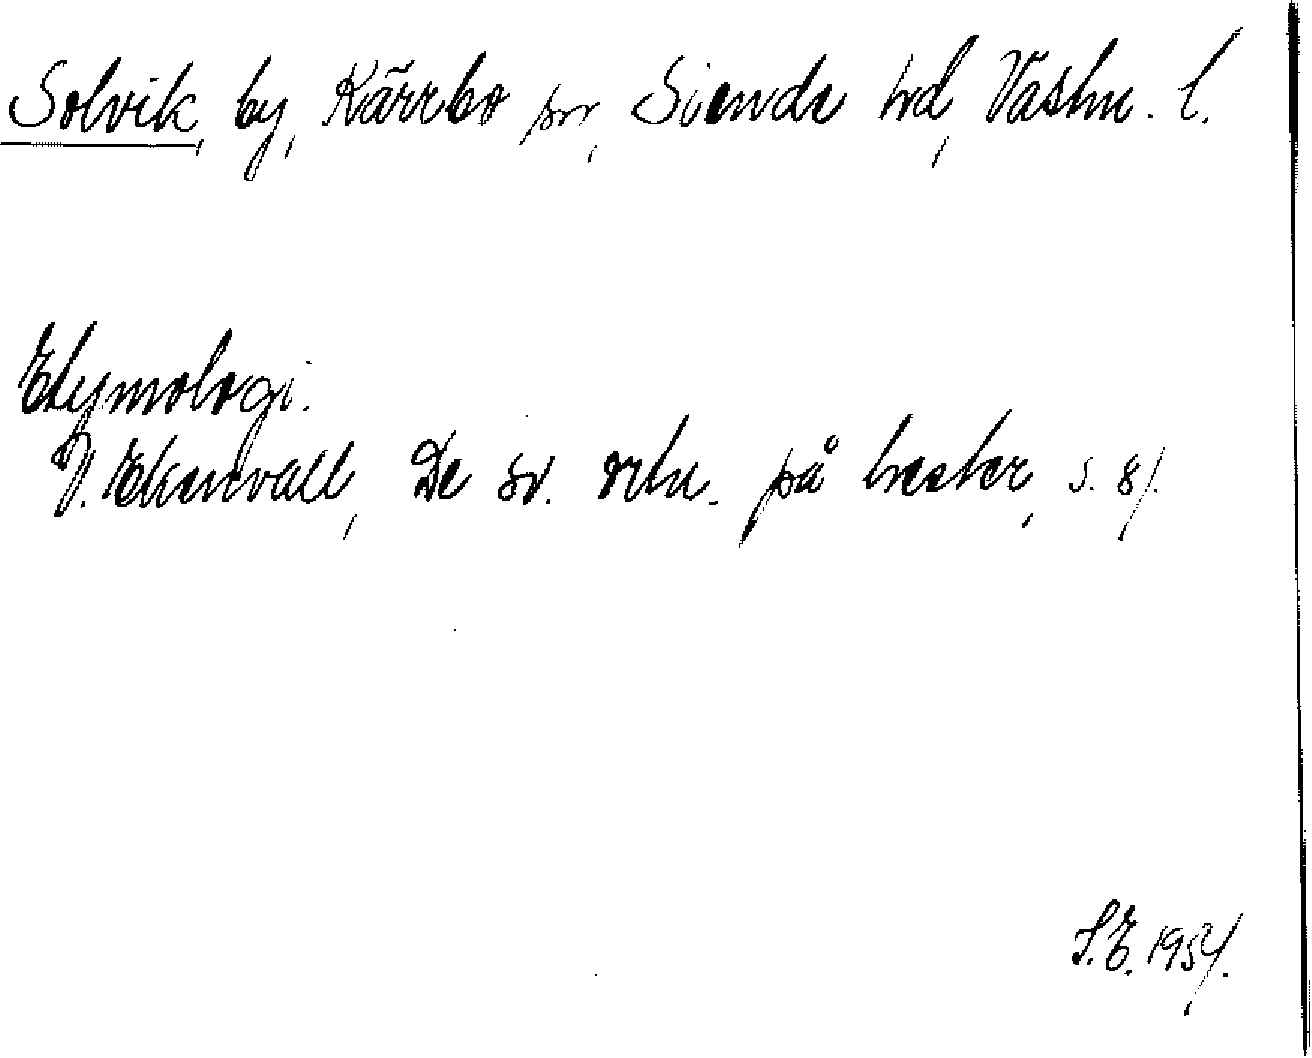 Solvik, by, Kärrbo sn, Siende hd, Västm. l.
Etymologi.
V. Ekenvall, De sv. ortn. på hester, s. 81.
S.E. 1954.